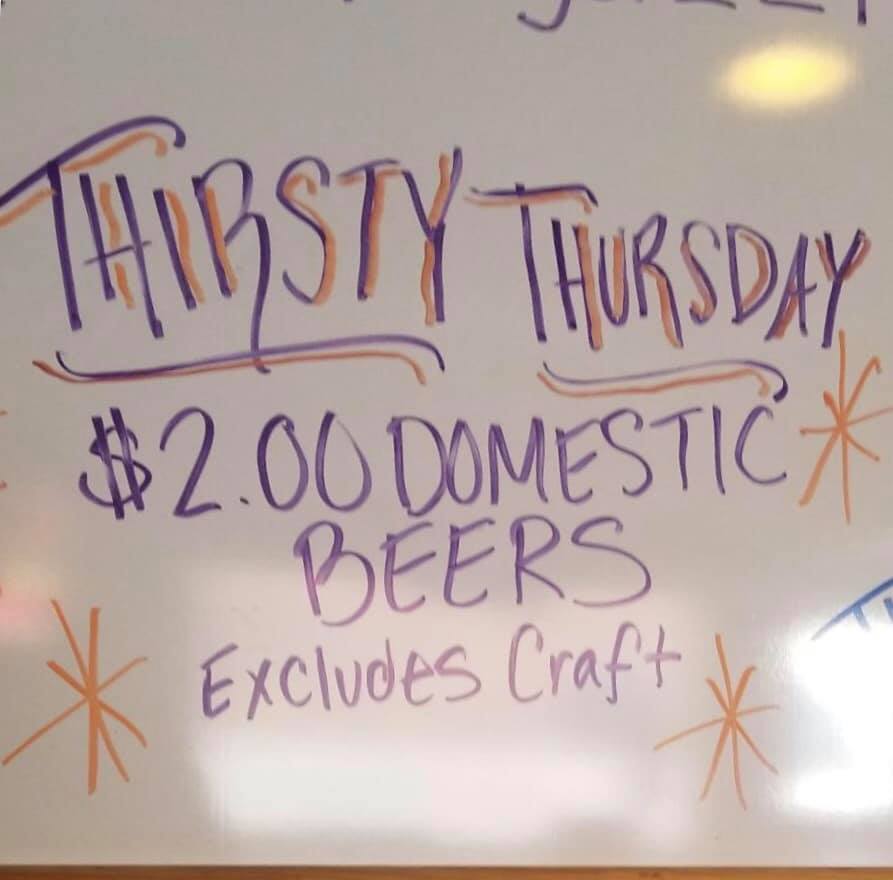 THIRSTY THURSDAY
$2.00 DOMESTIC
BEERS
Excludes Craft